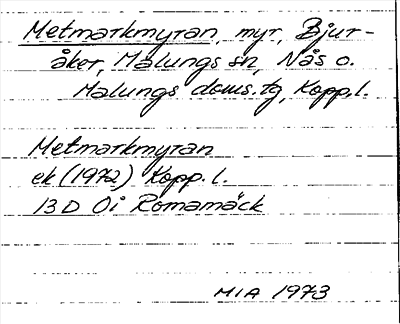 Metmarkmyran, myr, Bjur-
åker, Malungs sn, Nås o.
Malungs doms.tg, Kopp.l.
Metmarkmyran
ek (1972) Kopp. l.
13 D 0i Romamäck
MIA 1973